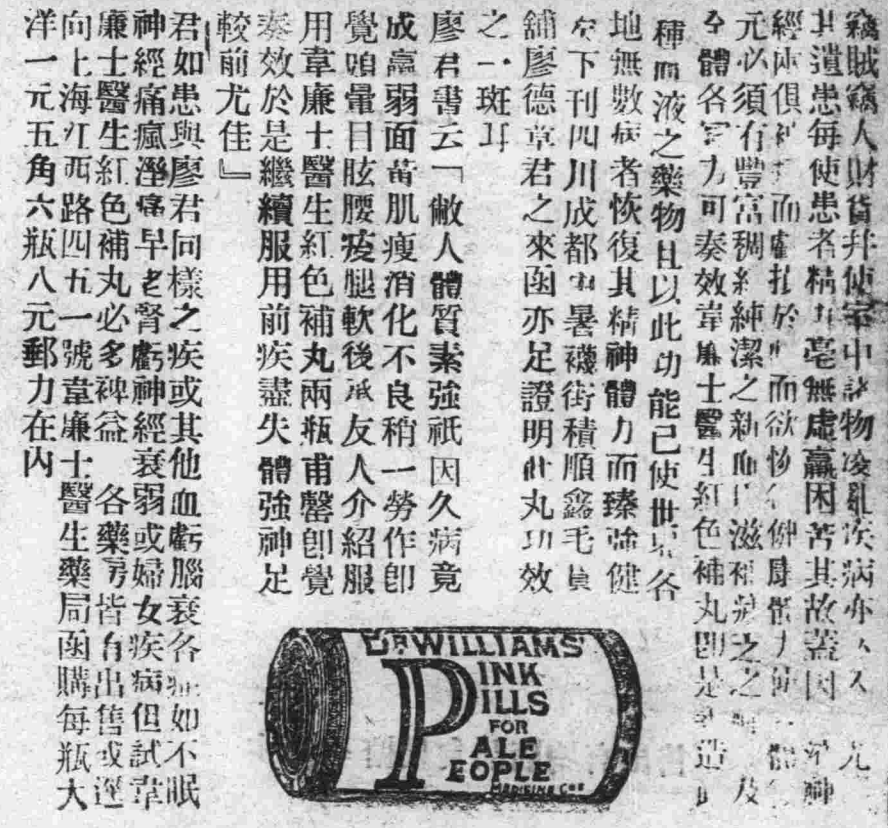 竊賊竊人財貨并使室中諸物凌亂疾病亦
其遺患每使患者精力毫無虛羸困苦其故蓋因
經兩俱而虛於而欲恢健康體力使體
元必須有豐富稠紅純潔之新血滋補之之及
全體各官方可奏效韋廉士醫生紅色補丸即是造
種血液之藥物且以此功能已使世界各
地無數病者恢復其精神體力而臻強健
下刊四川成都暑襪街積順鑫毛
舖廖德章君之來函亦足證明此丸功效
之一斑耳
廖君書云「敝人體質素強祇因久病竟
成羸弱面黃肌瘦消化不良稍一勞作即
覺頭暈目眩腰痠腿軟後承友人介紹服
用韋廉士醫生紅色補丸兩瓶甫罄即覺
奏效於是繼續服用前疾盡失體強神足
較前尤佳』
君如患與廖君同樣之疾或其他血虧腦衰各症如不眠
神經痛瘋溼痛早老腎虧神經衰弱或婦女疾病但試韋
廉士醫生紅色補丸必多裨益 各藥房皆有出售或逕
向上海江西路四五一號韋廉士醫生藥局函購每瓶大
洋一元五角六瓶八元郵力在內
DR WILLIAMS'
PINK
PILLS
FOR
PALE
PEOPLE
MEDICINE Co